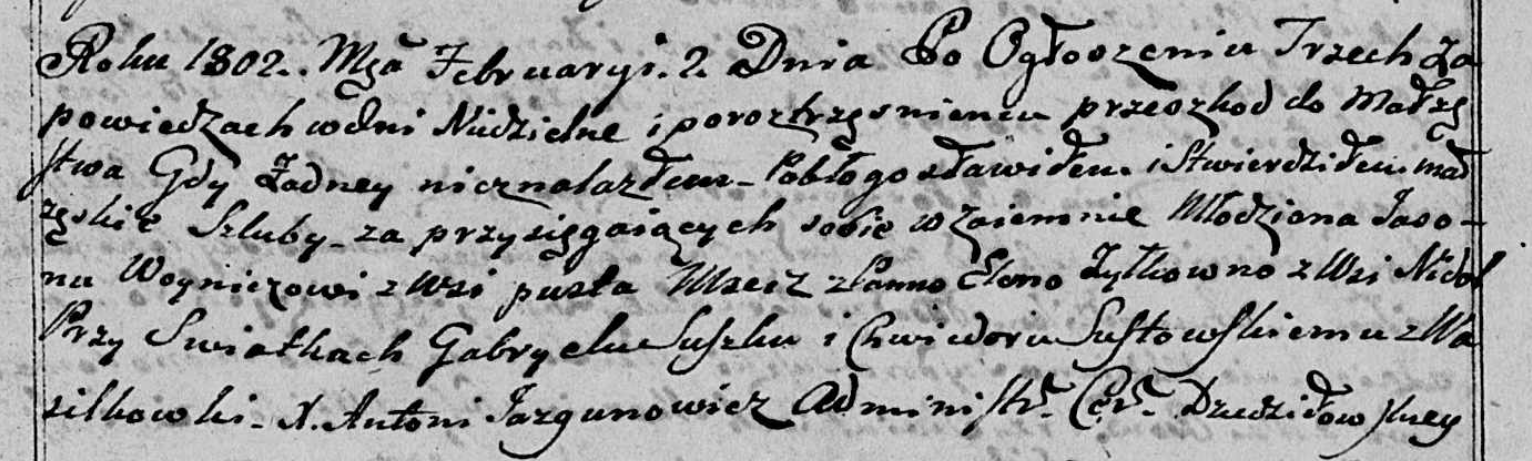 Roku 1802. Mca Februaryi. 2. Dnia Po Ogłoszeniu Trzech Za
powiedzach w dni Niedzielne i poroztrzęsnieniu przeozkod do Małżę
stwa Gdy Żadney nieznalazłem – Pobłogosławiłem. i Stwierdziłem mał
żęskie Szluby – za przysięgaiących sobie wzaiemnie Młodziana Jaso-
na Woyniczowi z Wsi pusta Mzeiz z Panno Eleno Żyłkowno z Wsi Nidal
Przy Swiatkach Gabryelu Suszku i Chwiedoru Susłowskiemu z Wa
silkowki – X. Antoni Jazgunowicz Administr. Cer. Dziedziłowskiey